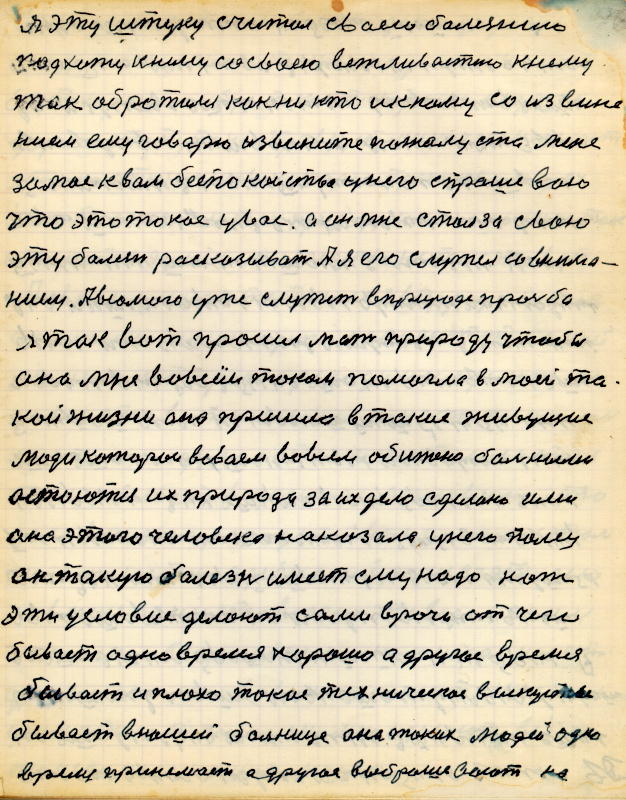 я эту штуку считал своею болезнию
подхожу книму сосвоею вежливастию книму
так обротился как никто икному со извине
нием ему говарю извените пожалуста мене
замое квам беспокойства унего спрашеваю
что это такое увас. а он мне стал за свою
эту болезн расказыват А я его служел совнима-
нием. Авсамого уже служит вприроде прозба
я так вот просил мат природу чтобы
она мне вовсём таком помогла в моей та-
кой жизни она пришла втакие живущие
люди которои всваем вовсем обижено болными
остоются их природа за их дело сделано ими
она этого человека наказала унего полец
он такую болезн имеет ему надо нож
эти условие делоют сами врачь от чего
бывает одно время хорошо а другое время
бывает и плохо такое техническое выкуство
бывает внашей болнице она таких людей одно
время принемает а другое выброшевоют на